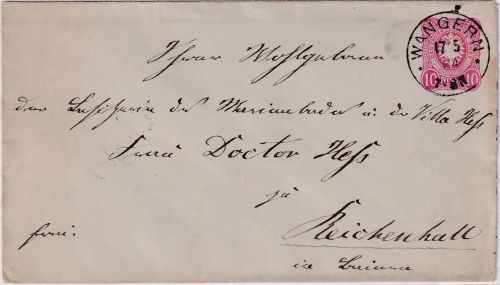 WANGERN
17 5
84
7-8N
10 10
Ihrer Wohlgeboren
der Besitzerin des Marienbades u. der Villa Hess
Frau Doctor Hess
zu
Reichenhall
in Baiern
frei.